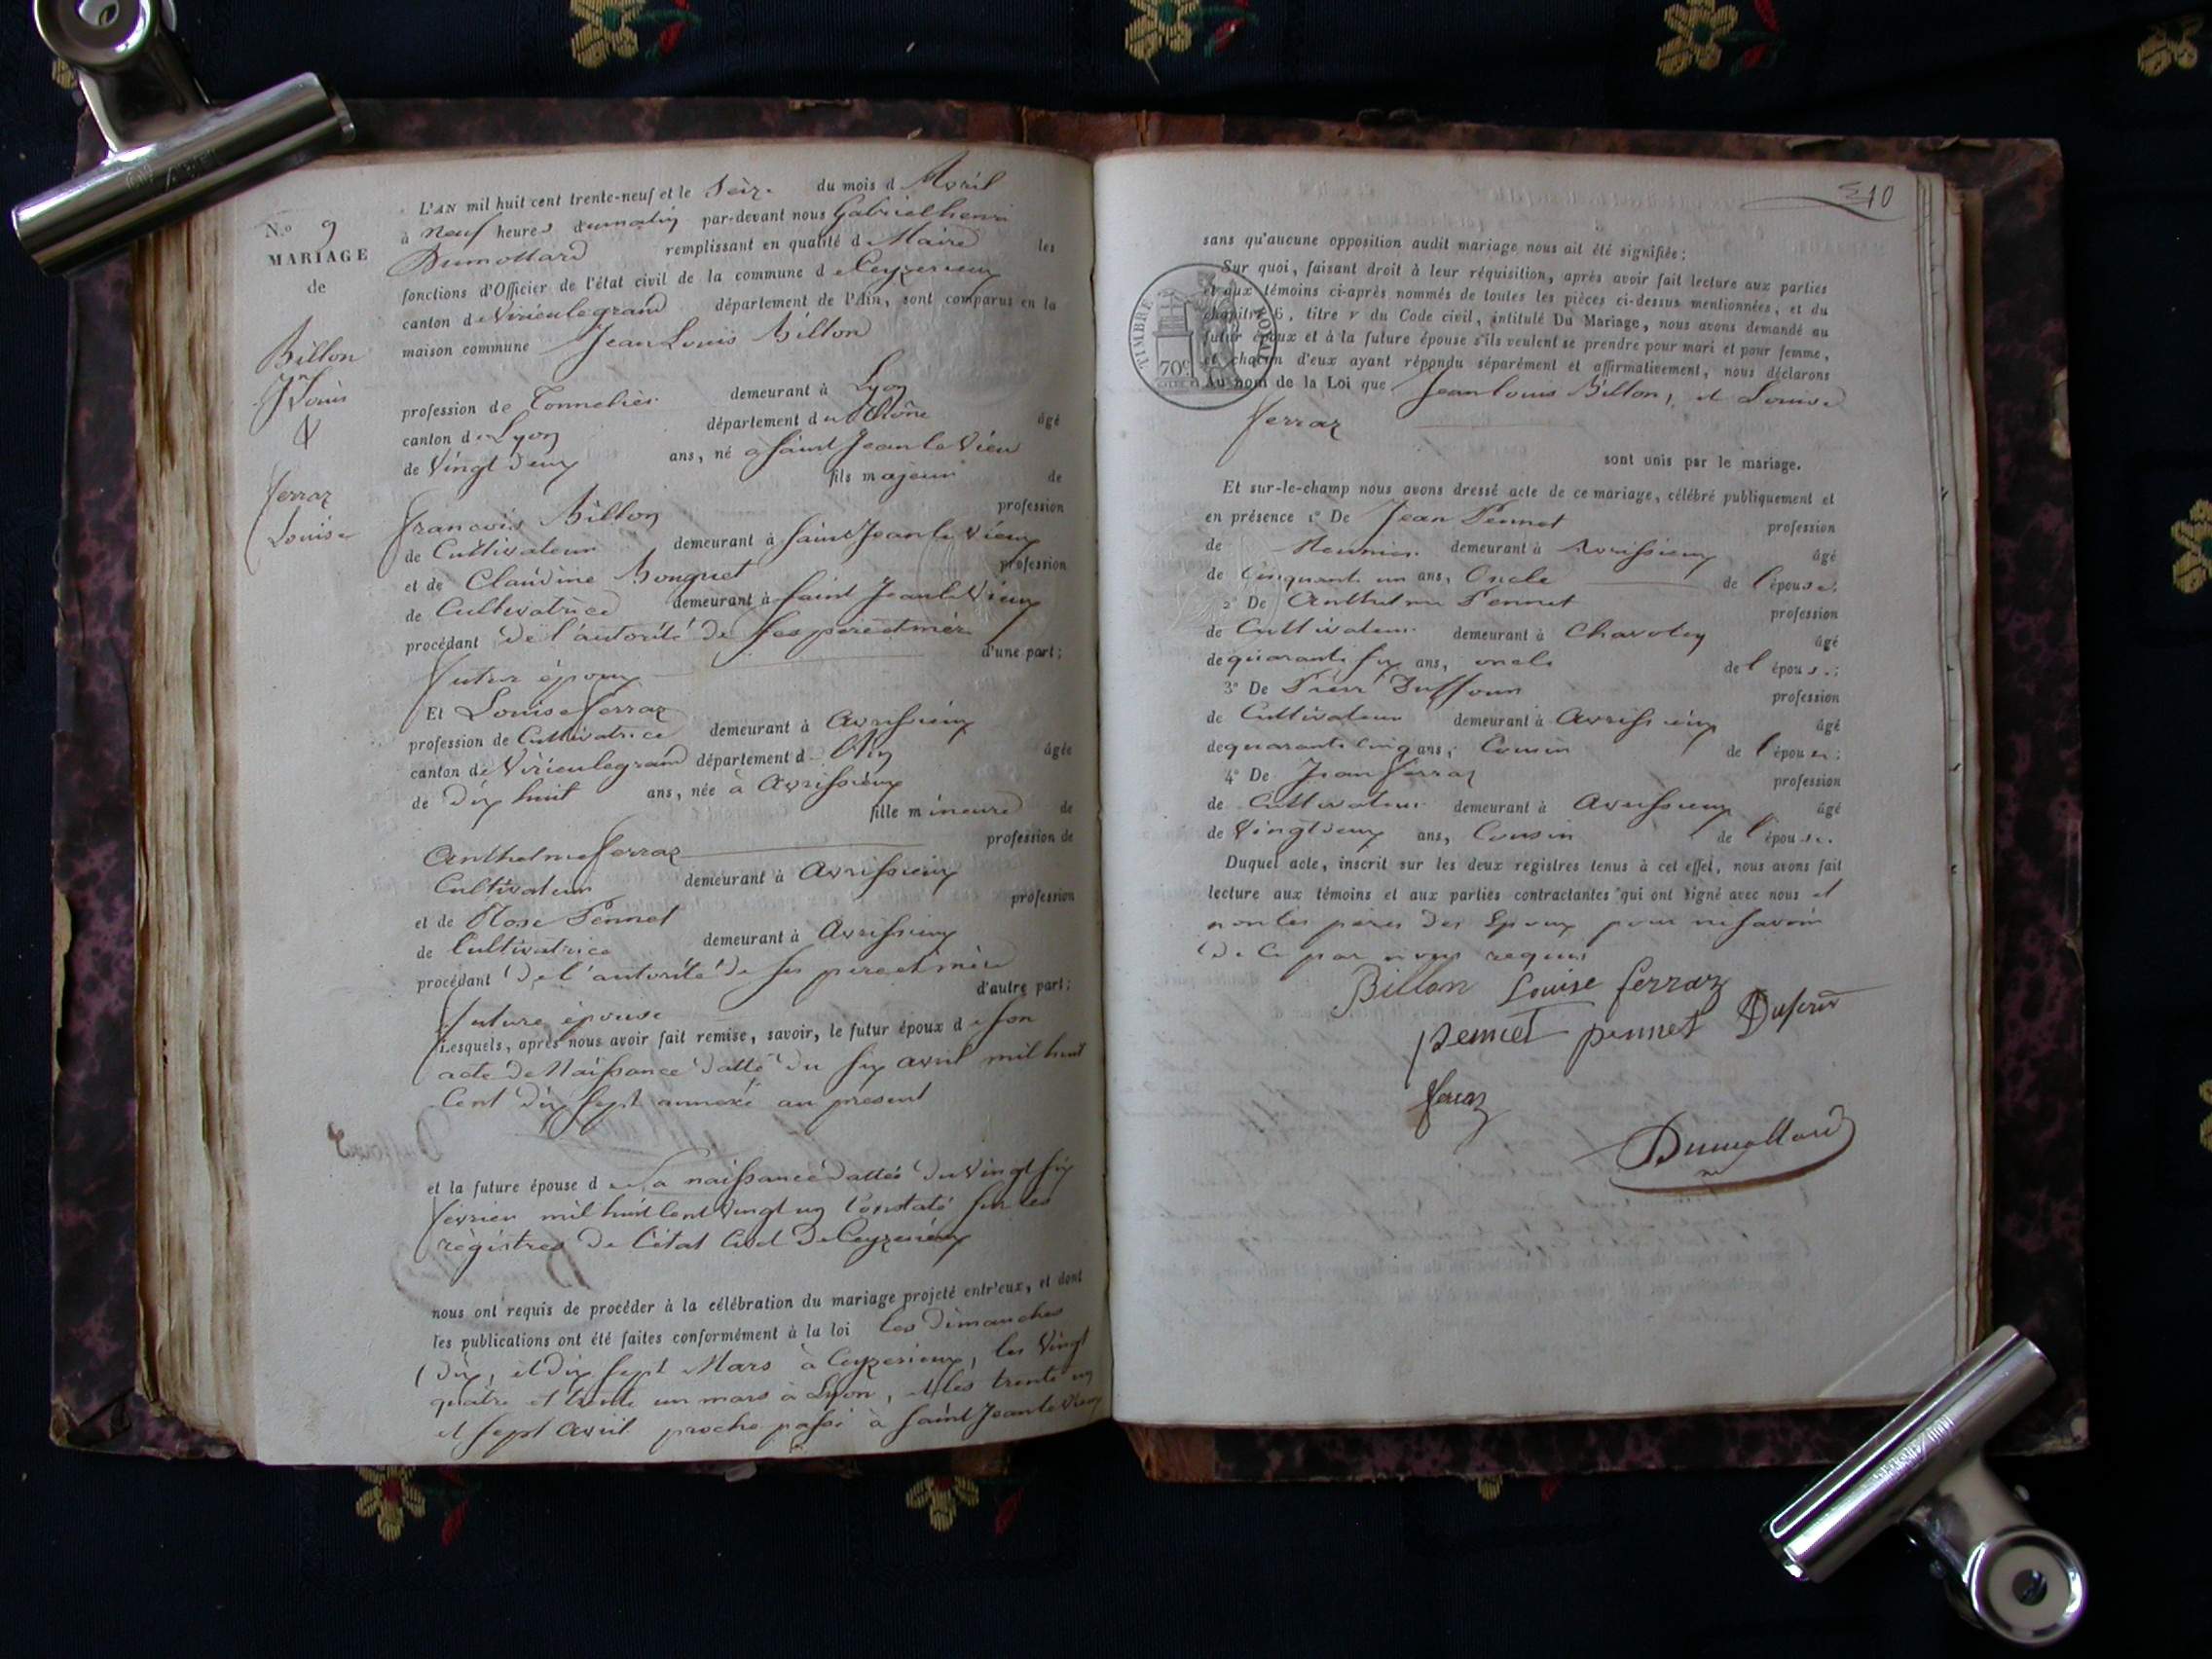 N.o 9
MARIAGE
de
Billon
Jn Louis
&
ferraz
Louise
L'AN mil huit cent trente-neuf et le Seize du mois d Avril
à Neuf heures du matin par-devant nous Gabriel henri
Dumollard remplissant en qualité de Maire les
fonctions d'Officier de l'état civil de la commune de Ceyzerieux
canton de Virieulegrand département de l'Ain, sont comparus en la
maison commune Jean Louis Billon
profession de Tonnelier demeurant à Lyon
canton de Lyon département du Rhône âgé
de Vingt deux ans, né a Saint Jean le Vieu
fils majeur de
françois Billon profession
de Cultivateur demeurant à Saint Jean le Vieux
et de Claudine Bonguet profession
de Cultivatrice demeurant à Saint Jean le Vieux
procédant de l'autorité de ses père et mère
d'une part;
futur époux
Et Louise ferraz
profession de Cultivatrice demeurant à Avrissieux
canton de Virieulegrand département d l'Ain âgée
de dix huit ans, née à Avrissieux
fille mineure de
Anthelme ferraz profession de
Cultivateur demeurant à Avrissieux
et de Rose Pennet profession
de Cultivatrice demeurant à Avrissieux
procédant de l'autorité de ses père et mère
d'autre part;
future épouse
Lesquels, après nous avoir fait remise, savoir, le futur époux de son
acte de Naissance datté du six avril mil huit
Cent dix sept annexé au présent
et la future épouse de sa naissance dattée du Vingt six
février mil huit Cent Vingt un Constaté sur les
régistres de l'état Civil de Ceyzerieux
nous ont requis de procéder à la célébration du mariage projeté entr'eux, et dont
les publications ont été faites conformément à la loi les dimanches
dix, et dix sept Mars à Ceyzerieux, les Vingt
quatre et trente un mars à Lyon, et les trente un
et sept avril proche passé à Saint Jean le Vieux
10
sans qu'aucune opposition audit mariage nous ait été signifiée;
Sur quoi, faisant droit à leur réquisition, après avoir fait lecture aux parties
et aux témoins ci-après nommés de toutes les pièces ci-dessus mentionnées, et du
chapitre 6, titre v du Code civil, intitulé Du Mariage, nous avons demandé au
futur époux et à la future épouse s'ils veulent se prendre pour mari et pour femme,
et chacun d'eux ayant répondu séparément et affirmativement, nous déclarons
Au nom de la Loi que Jean louis Billon, et Louise
ferraz
sont unis par le mariage.
TIMBRE ROYAL
70c
Et sur-le-champ nous avons dressé acte de ce mariage, célébré publiquement et
en présence 1o De Jean Pennet profession
de Meunier demeurant à Avrissieux âgé
de Cinquante un ans, Oncle de l'épouse.
2o De Anthelme Pennet profession
de Cultivateur demeurant à Chavoley âgé
de quarante six ans, oncle de l'épouse;
3o De Pierre Duffour profession
de Cultivateur demeurant à Avrissieux âgé
de quarante cinq ans, Cousin de l'épouse;
4o De Jean ferraz profession
de Cultivateur demeurant à Avrissieux âgé
de Vingt deux ans, Cousin de l'épouse.
Duquel acte, inscrit sur les deux registres tenus à cet effet, nous avons fait
lecture aux témoins et aux parties contractantes qui ont signé avec nous et
non les peres des Epoux pour ne savoir
de Ce par nous requis
Billon Louise ferraz
pennet pennet
feraz
Dumollard